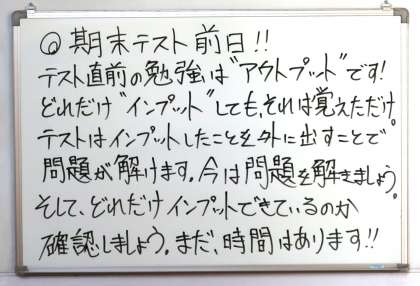 ◎期末テスト前日!!
テスト直前の勉強は"アウトプット"です!
どれだけ"インプット"しても、それは覚えただけ。
テストはインプットしたことを外に出すことで
問題が解けます。今は問題を解きましょう。
そして、どれだけインプットできているのか
確認しましょう。まだ、時間はあります!!